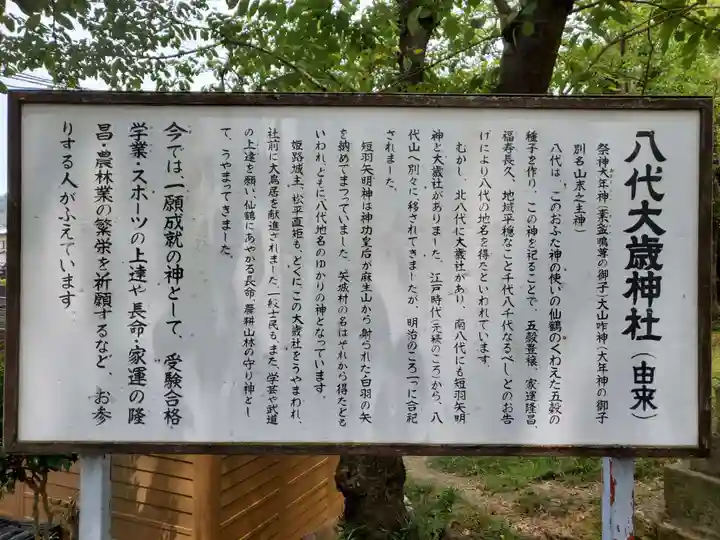 八代大歳神社（由来）
祭神大年神（素盞嗚尊の御子）大山咋神（大年神の御子
別名山末之主神）
八代は、このおふた神の使いの仙鶴のくわえた五穀の
種子を作り、この神を祀ることで、五穀豊穣、家運隆昌、
福寿長久、地域平穏なこと千代八千代なるべしとのお告
げにより八代の地名を得たといわれています。
むかし、北八代に大歳社があり、南八代にも短羽矢明
神と大歳社がありました。江戸時代（元禄のころ）から、八
代山へ別々に移されてきましたが、明治のころ一つに合祀
されました。
短羽矢明神は神功皇后が麻生山から射られた白羽の矢
を納めてまつっていました。矢城村の名はそれから得たとも
いわれ、ともに八代地名のゆかりの神となっています。
姫路城主、松平直矩も、とくにこの大歳社をうやまわれ、
社前に大鳥居を献進されました。一般士民も、また、学芸や武道
の上達を願い仙鶴にあやかる長命、農耕山林の守り神とし
て、うやまってきました。
今では、一願成就の神として、受験合格・
学業・スポーツの上達や長命・家運の隆
昌・農林業の繁栄を祈願するなど、お参
りする人がふえています。